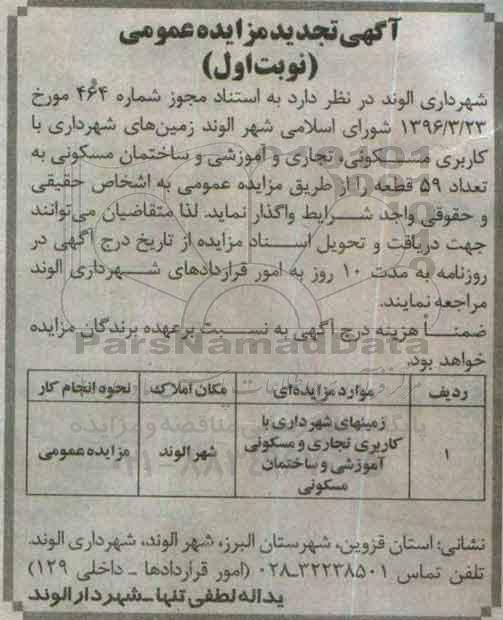 آگهی تجدید مزایده عمومی
(نوبت اول)
شهرداری الوند در نظر دارد به استناد مجوز شماره ۴۶۴ مورخ
۱۳۹۶/۳/۲۳ شورای اسلامی شهر الوند زمین‌های شهرداری با
کاربری مسکونی، تجاری و آموزشی و ساختمان مسکونی به
تعداد ۵۹ قطعه را از طریق مزایده عمومی به اشخاص حقیقی
و حقوقی واجد شرایط واگذار نماید. لذا متقاضیان می‌توانند
جهت دریافت و تحویل اسناد مزایده از تاریخ درج آگهی در
روزنامه به مدت ۱۰ روز به امور قراردادهای شهرداری الوند
مراجعه نمایند.
ضمناً هزینه درج آگهی به نسبت برعهده برندگان مزایده
خواهد بود.
ParsNamadData
ردیف موارد مزایده‌ای مکان املاک نحوه انجام کار
۱ زمینهای شهرداری با کاربری تجاری و مسکونی آموزشی و ساختمان مسکونی شهر الوند مزایده عمومی
نشانی: استان قزوین، شهرستان البرز، شهر الوند، شهرداری الوند.
تلفن تماس ۳۲۲۳۸۵۰۱-۰۲۸ (امور قراردادها - داخلی ۱۲۹)
یداله لطفی تنها - شهردار الوند